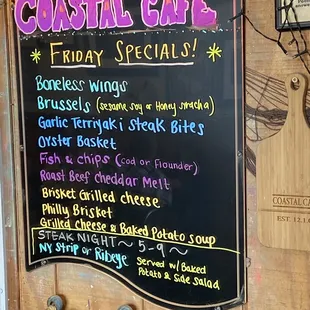 COASTAL CAFE
* FRIDAY SPECIALS! *
Boneless Wings
Brussels (sesame soy or Honey sriracha)
Garlic Terriyaki Steak Bites
Oyster Basket
Fish & chips (cod or Flounder)
Roast Beef cheddar Melt
Brisket Grilled cheese
Philly Brisket
Grilled cheese & Baked Potato soup
STEAK NIGHT ~ 5-9 ~
NY Strip or Ribeye
Served w/ Baked
Potato & Side Salad
COASTAL CA
EST. 12.1